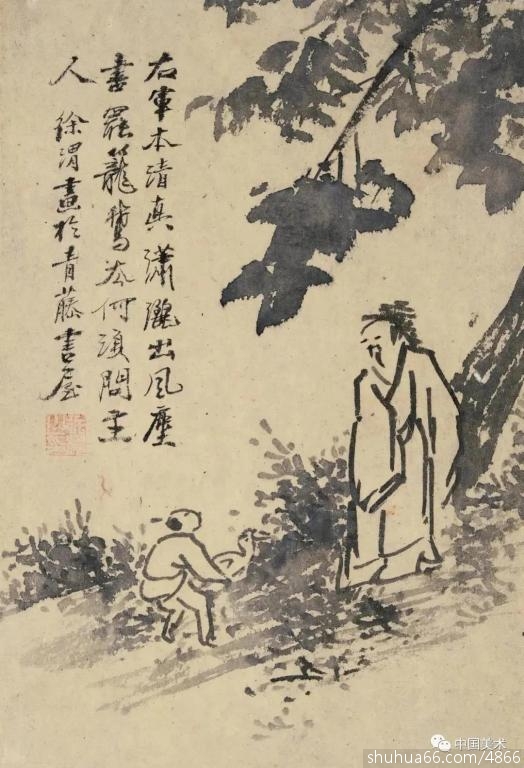 右軍本清真瀟灑出風塵
書罷籠鵞去何須問主
人 徐渭畫於青藤書屋
中国美术
shuhua66.com/4866